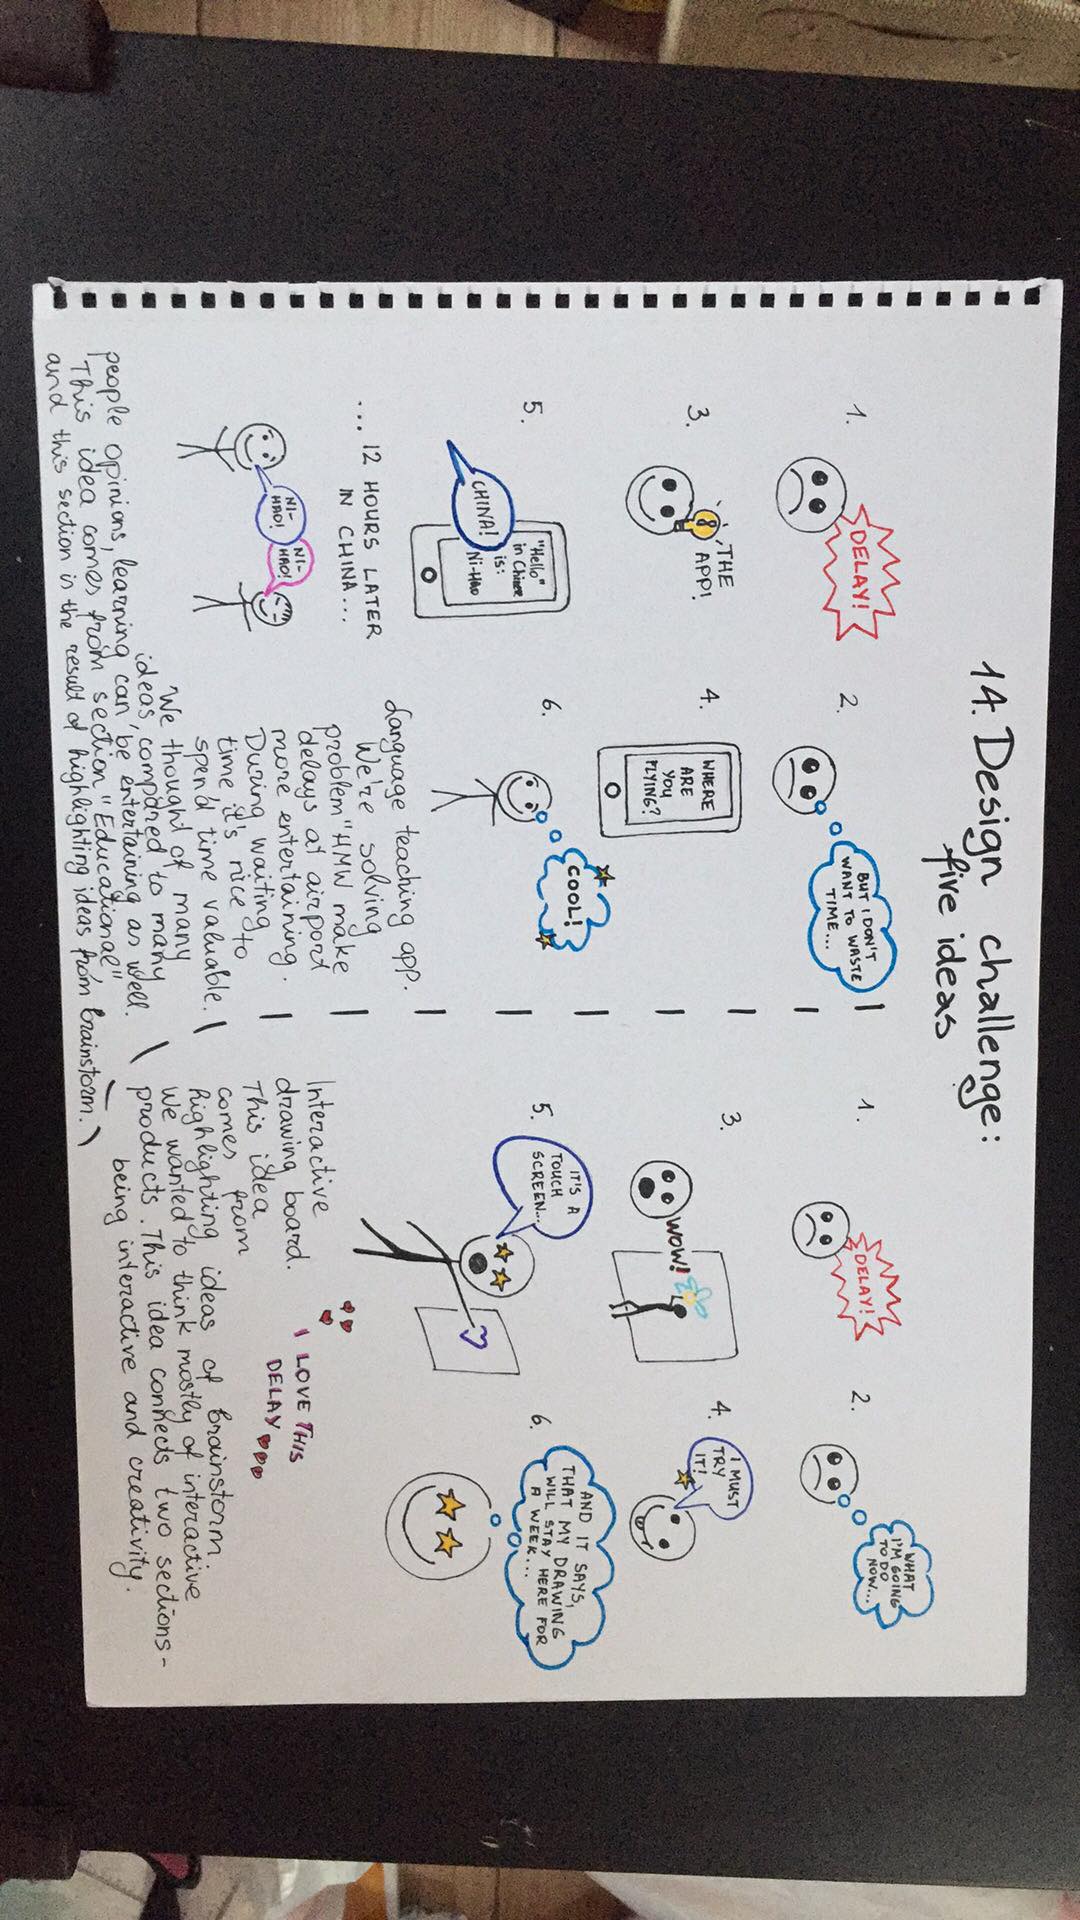 14. Design challenge:
five ideas
1.
DELAY!
2.
BUT I DON'T
WANT TO WASTE
TIME...
3.
THE
APP!
4.
WHERE
ARE
YOU
FLYING?
5.
CHINA!
"Hello"
in Chinese
is:
Ni-HAO
6.
COOL!
... 12 HOURS LATER
IN CHINA...
NI-
HAO!
NI-
HAO!
Language teaching app.
We're solving
problem "HMW make
delays at airport
more entertaining.
During waiting
time it's nice to
spend time valuable.
We thought of many
ideas, compared to many
people opinions, learning can be entertaining as well.
This idea comes from section "Educational"
and this section is the result of highlighting ideas from brainstorm.
1.
DELAY!
2.
WHAT
I'M GOING
TO DO
NOW...
3.
WOW!
4.
I MUST
TRY
IT!
5.
IT'S A
TOUCH
SCREEN...
6.
AND IT SAYS,
THAT MY DRAWING
WILL STAY HERE FOR
A WEEK...
I LOVE THIS
DELAY
Interactive
drawing board.
This idea
comes from
highlighting ideas of brainstorm
We wanted to think mostly of interactive
products. This idea connects two sections-
being interactive and creativity.